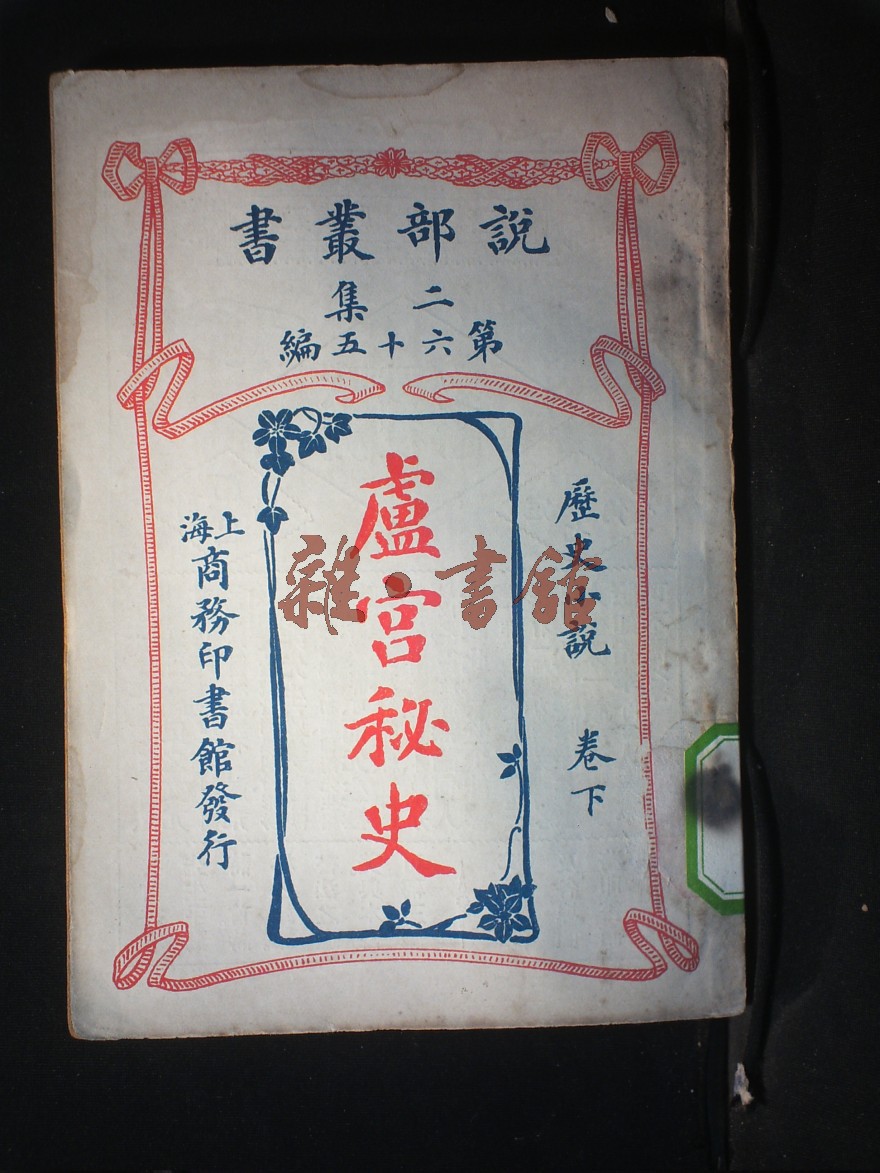 說部叢書
二集
第六十五編
歷史小說 卷下
盧宮秘史
上海商務印書館發行
雜·書館